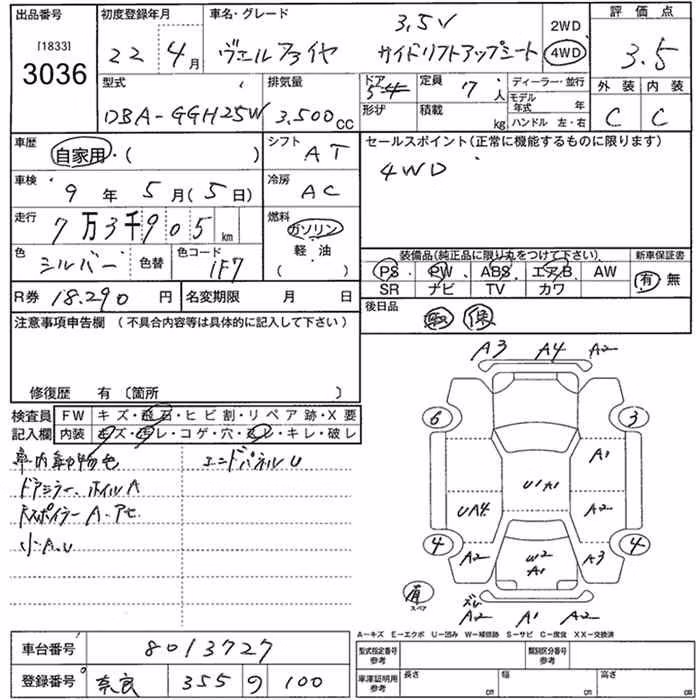 出品番号 初度登録年月 車名・グレード 3.5V 2WD 評価点
[1833] 22 4月 ヴェルファイヤ サイドリフトアップシート 4WD 3.5
3036
型式 排気量 ドア 定員 ディーラー・並行 外装 内装
DBA-GGH25W 3,500cc 5-4 7人 モデル年式 年 C C
形状 積載 kg ハンドル 左・右
車歴 シフト セールスポイント(正常に機能するものに限ります)
自家用・( ) AT 4WD
車検 冷房
9年 5月(5日) AC
走行 燃料
7万3千905km ガソリン
色 色替 色コード 軽・油 装備品(純正品に限り丸をつけて下さい) 新車保証書
シルバー 1F7 ( ) PS PW ABS エアB AW 有 無
R券 18.290円 名変期限 月 日 SR ナビ TV カワ
注意事項申告欄(不具合内容等は具体的に記入して下さい) 後日品
取 保
修復歴 有〔箇所 〕
検査員 FW キズ・飛石・ヒビ割・リペア跡・X要
記入欄 内装 キズ・汚レ・コゲ・穴・スレ・キレ・破レ
エンドパネルU
ドアミラー、ホイルA
小A.U
A3 A4 A2
6 3
A1
U1 A1
UA4 A2
4 4
A2 W2 A3
A1
スペア
A2 A1 A2
A−キズ E−エクボ U−凹み W−補修跡 S−サビ C−腐食 XX−交換済
車台番号 8013727 型式指定番号 参考 類別区分番号 参考
登録番号 奈良 355 の 100 車庫証明用 参考 長さ cm 幅 cm 高さ cm